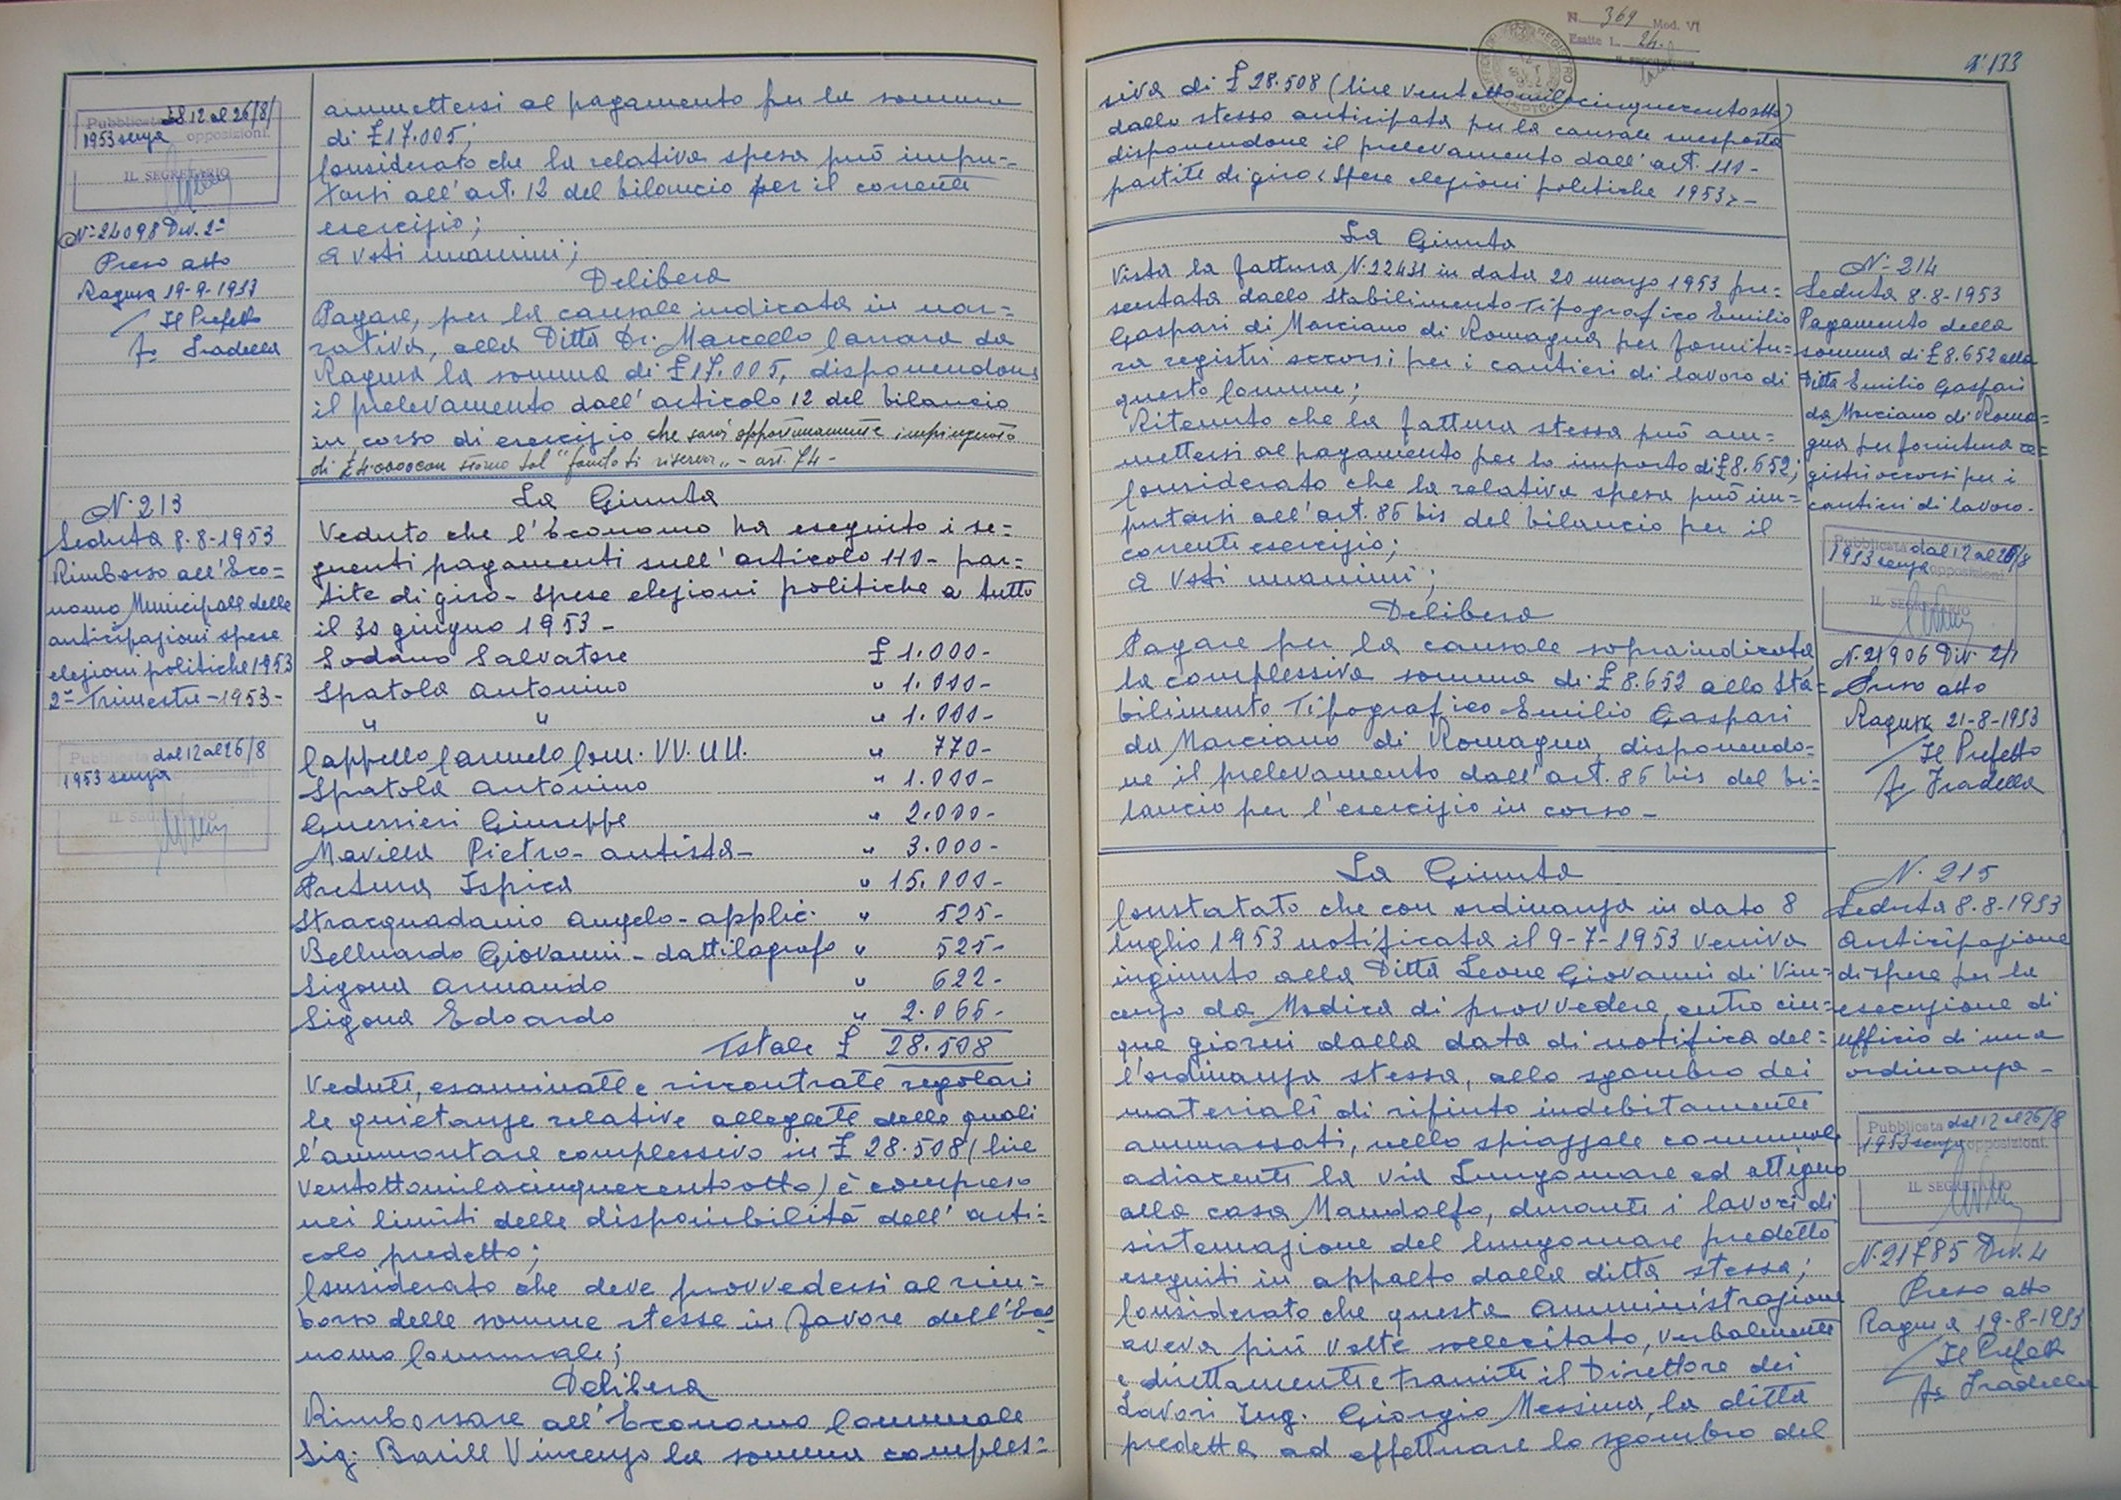 Pubblicata dal 12 al 26/8/
1953 senza opposizioni.
IL SEGRETARIO
N° 24098 Div. 2ª
Preso atto
Ragusa 19-9-1953
Il Prefetto
fo Fradella
N. 213
Seduta 8.8-1953
Rimborso all'Eco=
nomo Municipale delle
anticipazioni spese
elezioni politiche 1953
2° Trimestre - 1953 -
Pubblicata dal 12 al 26/8
1953 senza
IL SEGRETARIO
ammettersi al pagamento per la somma
di £17.005;
Considerato che la relativa spesa può impu-
tarsi all'art. 12 del bilancio per il corrente
esercizio;
a voti unanimi;
Delibera
Pagare, per la causale indicata in nar=
rativa, alla Ditta Dr. Marcello Carrara da
Ragusa la somma di £17.005, disponendone
il prelevamento dall'articolo 12 del bilancio
in corso di esercizio che sarà opportunamente impinguato
di £4.0000 con storno dal "fondo di riserva" - art. 74 -
La Giunta
Veduto che l'Economo ha eseguito i se=
guenti pagamenti sull'articolo 110 - par=
tite di giro - spese elezioni politiche a tutto
il 30 giugno 1953 -
Lodano Salvatore £ 1.000-
Spatola Antonino " 1.000-
" " " 1.000-
Cappello Carmelo Com. VV.UU. " 770-
Spatola Antonino " 1.000-
Guerrieri Giuseppe " 2.000-
Mavilla Pietro - autista - " 3.000-
Pretura Ispica " 15.000-
Stracquadanio Angelo - applic. " 525-
Belluardo Giovanni - dattilografo " 525-
Sigona Armando " 622-
Sigona Edoardo " 2.066-
Totale £ 28.508
Vedute, esaminate e riscontrate regolari
le quietanze relative allegate delle quali
l'ammontare complessivo in £ 28.508 (lire
ventottomilacinquecentootto) è compreso
nei limiti delle disponibilità dell'arti=
colo predetto;
Considerato che deve provvedersi al rim=
borso delle somme stesse in favore dell'Eco
nomo Comunale;
Delibera
Rimborsare all'Economo Comunale
Sig. Barill Vincenzo la somma comples=
N. 369 Mod. VI
Esatte L. 24.
n° 133
siva di £ 28.508 (lire ventottomilacinquecentootto)
dallo stesso anticipata per la causale suesposta
disponendone il prelevamento dall'art. 110 -
partite di giro "Spese elezioni politiche 1953" -
La Giunta
Vista la fattura N. 22431 in data 20 maggio 1953 pre=
sentata dallo Stabilimento Tipografico Emilio
Gaspari di Morciano di Romagna per fornitu=
ra registri occorsi per i cantieri di lavoro di
questo Comune;
Ritenuto che la fattura stessa può am=
mettersi al pagamento per lo importo di £8.652;
Considerato che la relativa spesa può im=
putarsi all'art. 86 bis del bilancio per il
corrente esercizio;
a voti unanimi;
Delibera
Pagare per la causale sopraindicata
la complessiva somma di £ 8.652 allo Sta=
bilimento Tipografico Emilio Gaspari
da Morciano di Romagna, disponendo=
ne il prelevamento dall'art. 86 bis del bi=
lancio per l'esercizio in corso -
La Giunta
Constatato che con ordinanza in dato 8
luglio 1953 notificata il 9-7-1953 veniva
ingiunto alla Ditta Leone Giovanni di Vin=
cenzo da Modica di provvedere, entro cin=
que giorni dalla data di notifica del=
l'ordinanza stessa, allo sgombro dei
materiali di rifiuto indebitamente
ammassati, nello spiazzale comunale
adiacente la via Lungomare ed attiguo
alla casa Mandolfo, durante i lavori di
sistemazione del lungomare predetto
eseguiti in appalto dalla ditta stessa;
Considerato che questa Amministrazione
aveva più volte sollecitato, verbalmente
e direttamente e tramite il Direttore dei
Lavori Ing. Giorgio Messina, la ditta
predetta ad effettuare lo sgombro del
N° 214
Seduta 8.8-1953
Pagamento della
somma di £ 8.652 alla
Ditta Emilio Gaspari
da Morciano di Roma=
gna per fornitura re=
gistri occorsi per i
cantieri di lavoro -
Pubblicata dal 12 al 26/8
1953 senza opposizioni
IL SEGRETARIO
N. 21906 Div 2/1
Preso atto
Ragusa 21-8-1953
Il Prefetto
fo Fradella
N. 215
Seduta 8.8-1953
Anticipazione
di spese per la
esecuzione di
ufficio di una
ordinanza -
Pubblicata dal 12 al 26/8
1953 senza opposizioni.
IL SEGRETARIO
N. 21785 Div. 4
Preso atto
Ragusa 19-8-1953
Il Prefetto
fo Fradella